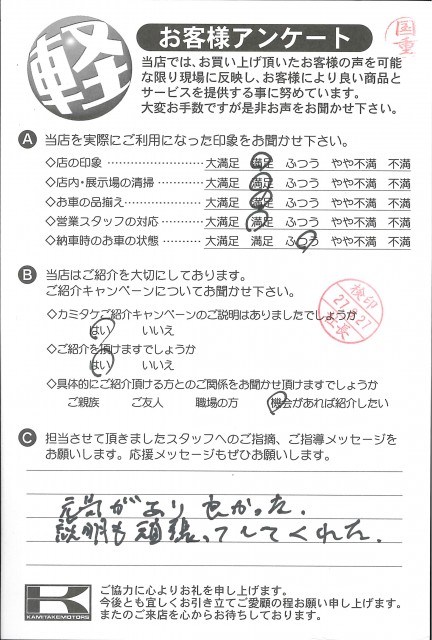 軽
お客様アンケート
国重
当店では、お買い上げ頂いたお客様の声を可能
な限り現場に反映し、お客様により良い商品と
サービスを提供する事に努めています。
大変お手数ですが是非お声をお聞かせ下さい。
A 当店を実際にご利用になった印象をお聞かせ下さい。
◇店の印象 ……………………… 大満足 満足 ふつう やや不満 不満
◇店内・展示場の清掃 ………… 大満足 満足 ふつう やや不満 不満
◇お車の品揃え ………………… 大満足 満足 ふつう やや不満 不満
◇営業スタッフの対応 ………… 大満足 満足 ふつう やや不満 不満
◇納車時のお車の状態 ………… 大満足 満足 ふつう やや不満 不満
B 当店はご紹介を大切にしております。
ご紹介キャンペーンについてお聞かせ下さい。
◇カミタケご紹介キャンペーンのご説明はありましたでしょうか
はい いいえ
◇ご紹介を頂けますでしょうか
はい いいえ
◇具体的にご紹介頂ける方とのご関係をお聞かせ頂けますでしょうか
ご親族 ご友人 職場の方 機会があれば紹介したい
検印
社長
C 担当させて頂きましたスタッフへのご指摘、ご指導メッセージを
お願いします。応援メッセージもぜひお願いします。
元気があり良かった.
説明も頑張ってしてくれた.
K
KAMITAKEMOTORS
ご協力に心よりお礼を申し上げます。
今後とも宜しくお引き立てご愛顧の程お願い申し上げます。
またのご来店を心からお待ちしております。